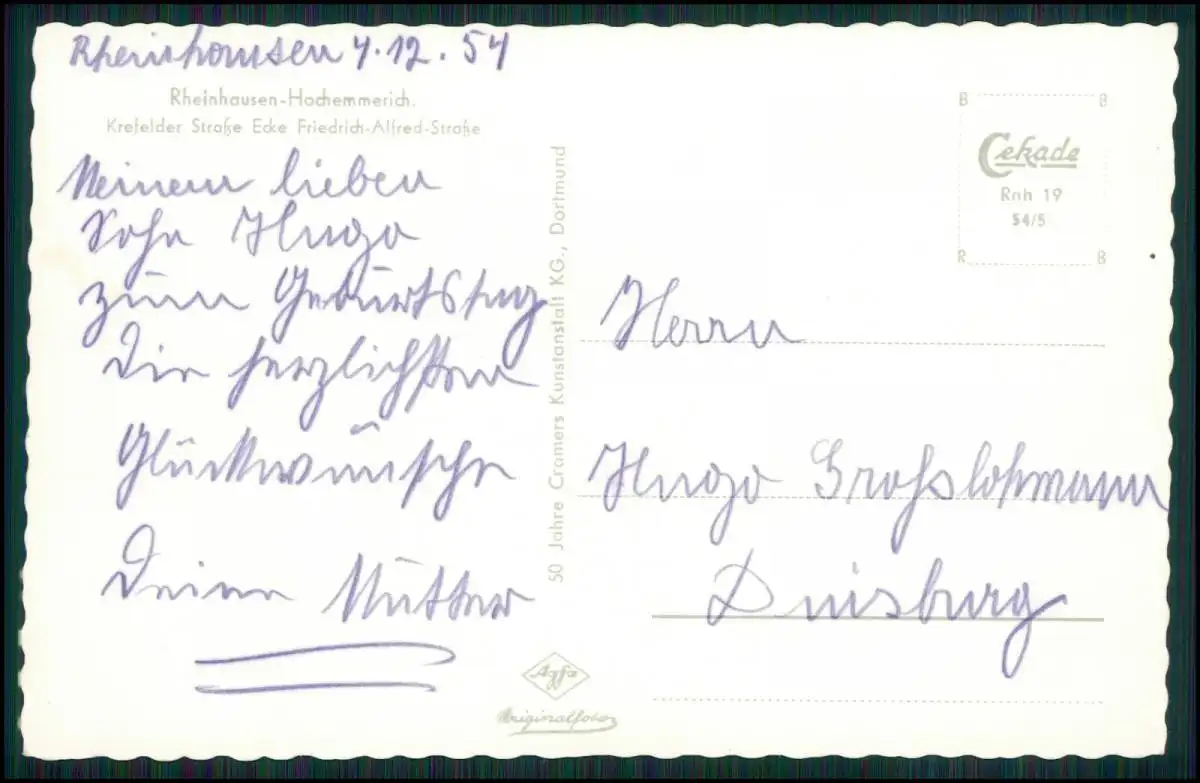 Rheinhausen 4.12.54
Rheinhausen-Hochemmerich.
Krefelder Straße Ecke Friedrich-Alfred-Straße
Meinem lieben
Sohn Hugo
zum Geburtstag
Die herzlichsten
Glückwünsche
Deine Mutter
50 Jahre Cramers Kunstanstalt KG., Dortmund
Agfa
Originalfoto
B B
Cekade
Rnh 19
54/5
R B
Herrn
Hugo Großloßmann
Duisburg